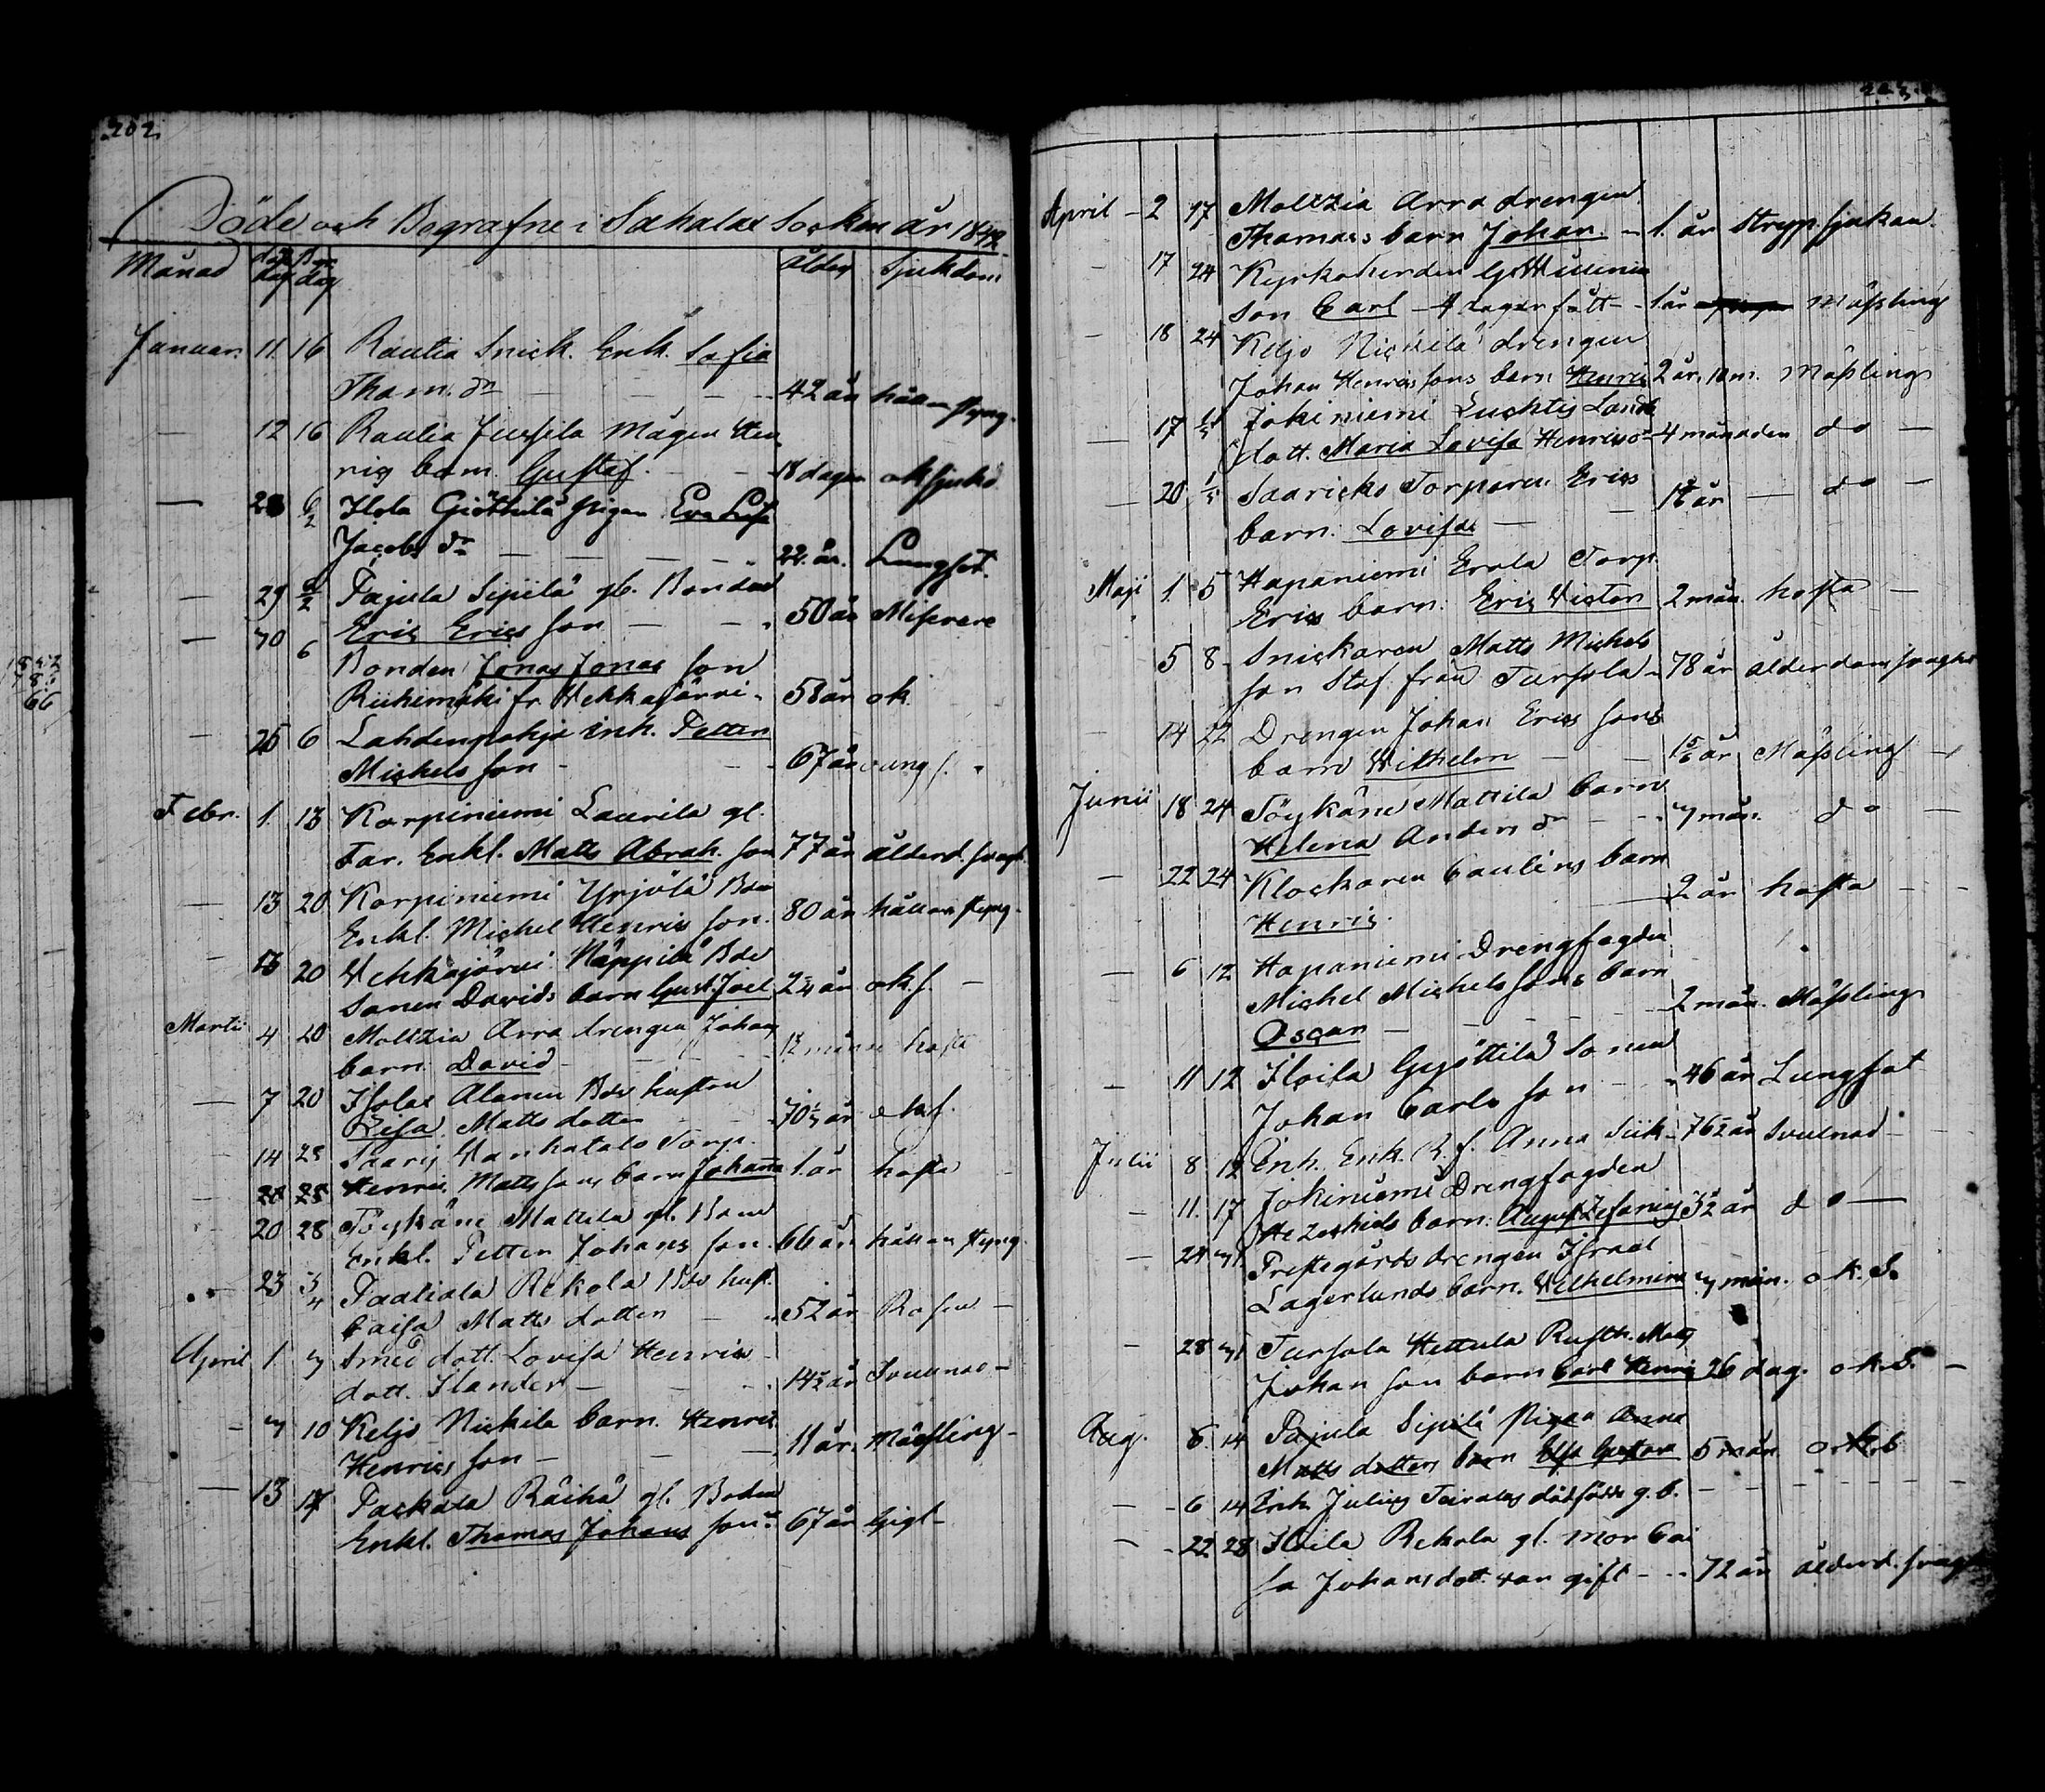 202
Döde och Begrafne i Sahalax Socken år 1842
Månad dag dag ålder Sjukdom
Januar. 11 16 Rautia Snick. Enk. Sofia
Thom. dr 42 år håll o. styng.
12 16 Rautia Jussila Mågen Hen
rics barn Gustaf. 18 dagar ok sjukd
28 6/2 Ilola Giöttilä pigan Eva Lisa
Jacobs dr 22 år. Lungsot.
29 6/2 Pajula Sipilä gl. Bonden
Eric Erics son 50 år Miserere
30 6 Bonden Jonas Jonas son
Riihimäki fr. Wekkajärvi 58 år ok.
26 6 Lahdenpohja inh. Petter
Michels son 67 år Lungs.
Febr. 1. 13 Korpiniemi Laurila gl.
Far. Enkl. Matts Abrah. son 77 år ålderd. svagh
13 20 Korpiniemi Yrjölä Bde
Enkl. Michel Henrics son. 80 år håll o. styng.
15 20 Wekkajärvi Näppilä Bde
sonen Davids barn Gust. Joel 2 1/4 år ok s.
Martii 4 20 Moltzia Arra drengen Johans
barn David hosta
7 20 Isolax Alanen Bde hustru
Lisa Matts dotter 70 1/2 år ok s.
14 28 Saaris Wanhatalo Torp.
28 28 Henric Matts sons barn Johanna 1 år hosta
20 28 Töykäne Mattila gl. Bond
Enkl. Petter Johans son. 66 år håll o. styng.
23 3/4 Paaliala Rekola Bde hust.
Caisa Matts dotter 52 år Rosen
April 1 7 Smed dott. Lovisa Henrics
dott. Ilander 14 1/2 år Svullnad
7 10 Keljo Nickila barn. Henric
Henrics son 11 år Mässling
13 17 Packala Räihä gl. Bonden
Enkl. Thomas Johans son. 67 år Gigt
April 2 17 Moltzia Arra drengen
Thomas barn Johan. 1. år Stryp sjukan.
17 24 Kyrkoherden
son Carl 1 år Mässling
18 24 Keljo Nickilä drengen
Johan Henrics sons barn Henric 2 år. 10 m. Mässling
17 1/5 Jokiniemi Luchtis Landb
dott. Maria Lovisa Henrics dr 4 månaden do
20 1/5 Saaricko Torparen Erics
barn. Lovisa do
Maji 1. 5 Hapaniemi Erola Torp.
Erics barn. Eric Victor 2 mån. hosta
5 8 Snickaren Matts Michels
son Staf från Tursola 78 år ålderdoms svaghet
14 22 Drengen Johan Erics sons
barn Wilhelm Mässling
Junii 18 24 Töykäne Mattila barn
Helena Anders dr 7 mån. do
22 24 Klockaren Caulins barn
Henric. 2 år hosta
6 12 Hapaniemi Drengfogden
Michel Michels sons barn
Oscar 2 mån. Mässling
11 12 Iloila Gyöttilä sonen
Johan Carls son 46 år Lungsot
Julii 8 12 Enh. Enk. R. f. Anna Siik 76 1/2 år Svulnad
11. 17 Jokiniemi Drengfogden
Hezekiels barn. August Zefanias 3 1/2 år do
24 31 Prestegårds drengen Israel
Lagerlunds barn. Wilhelmina 7 mån. o. k. S.
28 31 Tursola Hettula Rusth. Matts
Johan son barn Carl Henric 26 dag. o. k. S.
Aug. 6. 14 Pajula Sipilä pigan Anna
Matts dotters barn Ulla Gustava 5 mån o k s
6 14 Enh. Julius Teirolas dödfödde g. b.
22 28 Iloila Rekola gl. mor Cai
sa Johansdott. var gift 72 år ålderd. svagh